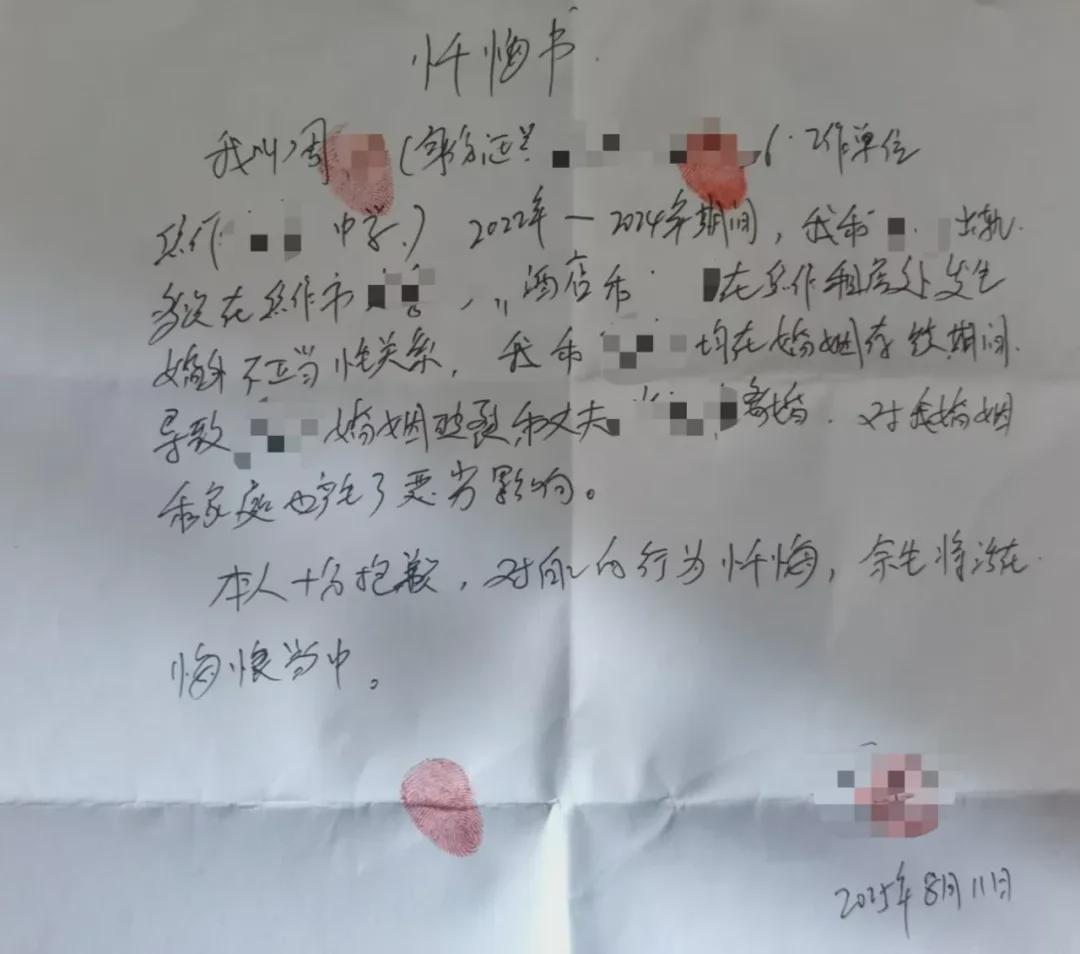 忏悔书.
我叫周 (身份证号 . 工作单位
焦作 中学.) 2022年一2024年期间，我和 出轨.
多次在焦作市 酒店和 在焦作租房处发生
婚外不正当性关系，我和 均在婚姻存续期间.
导致 婚姻破裂和丈夫 离婚. 对我婚姻
和家庭也产生了恶劣影响。
本人十分抱歉，对自己的行为忏悔，余生将活在.
悔恨当中。
2025年8月11日